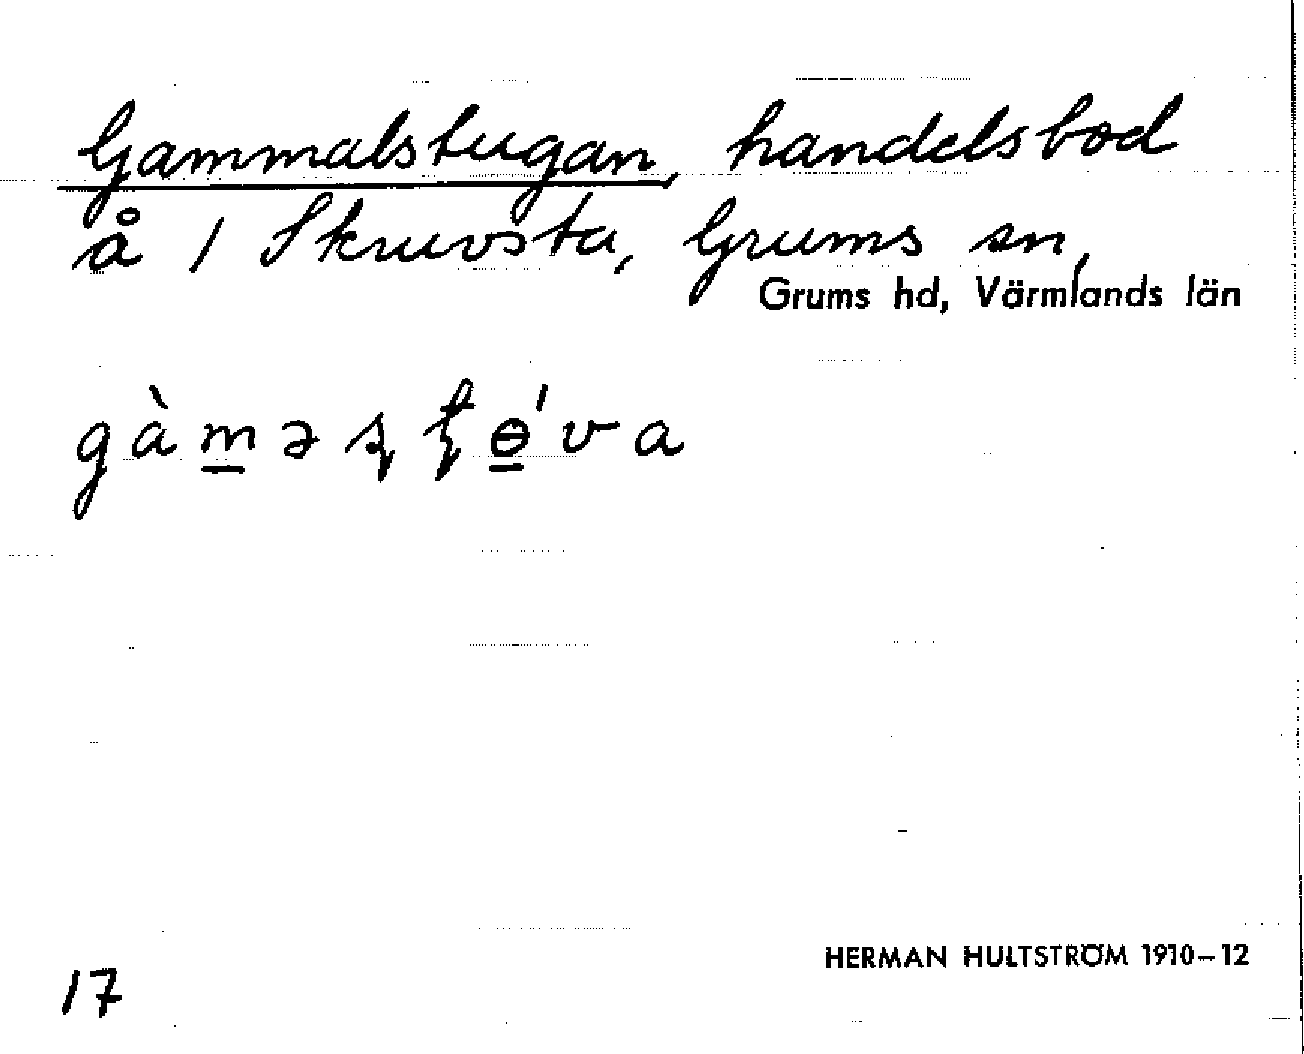 Gammalstugan, handelsbod
å 1 Skruvsta, Grums sn,
Grums hd, Värmlands län
gàməʂʈɵ́va
17
HERMAN HULTSTRÖM 1910–12